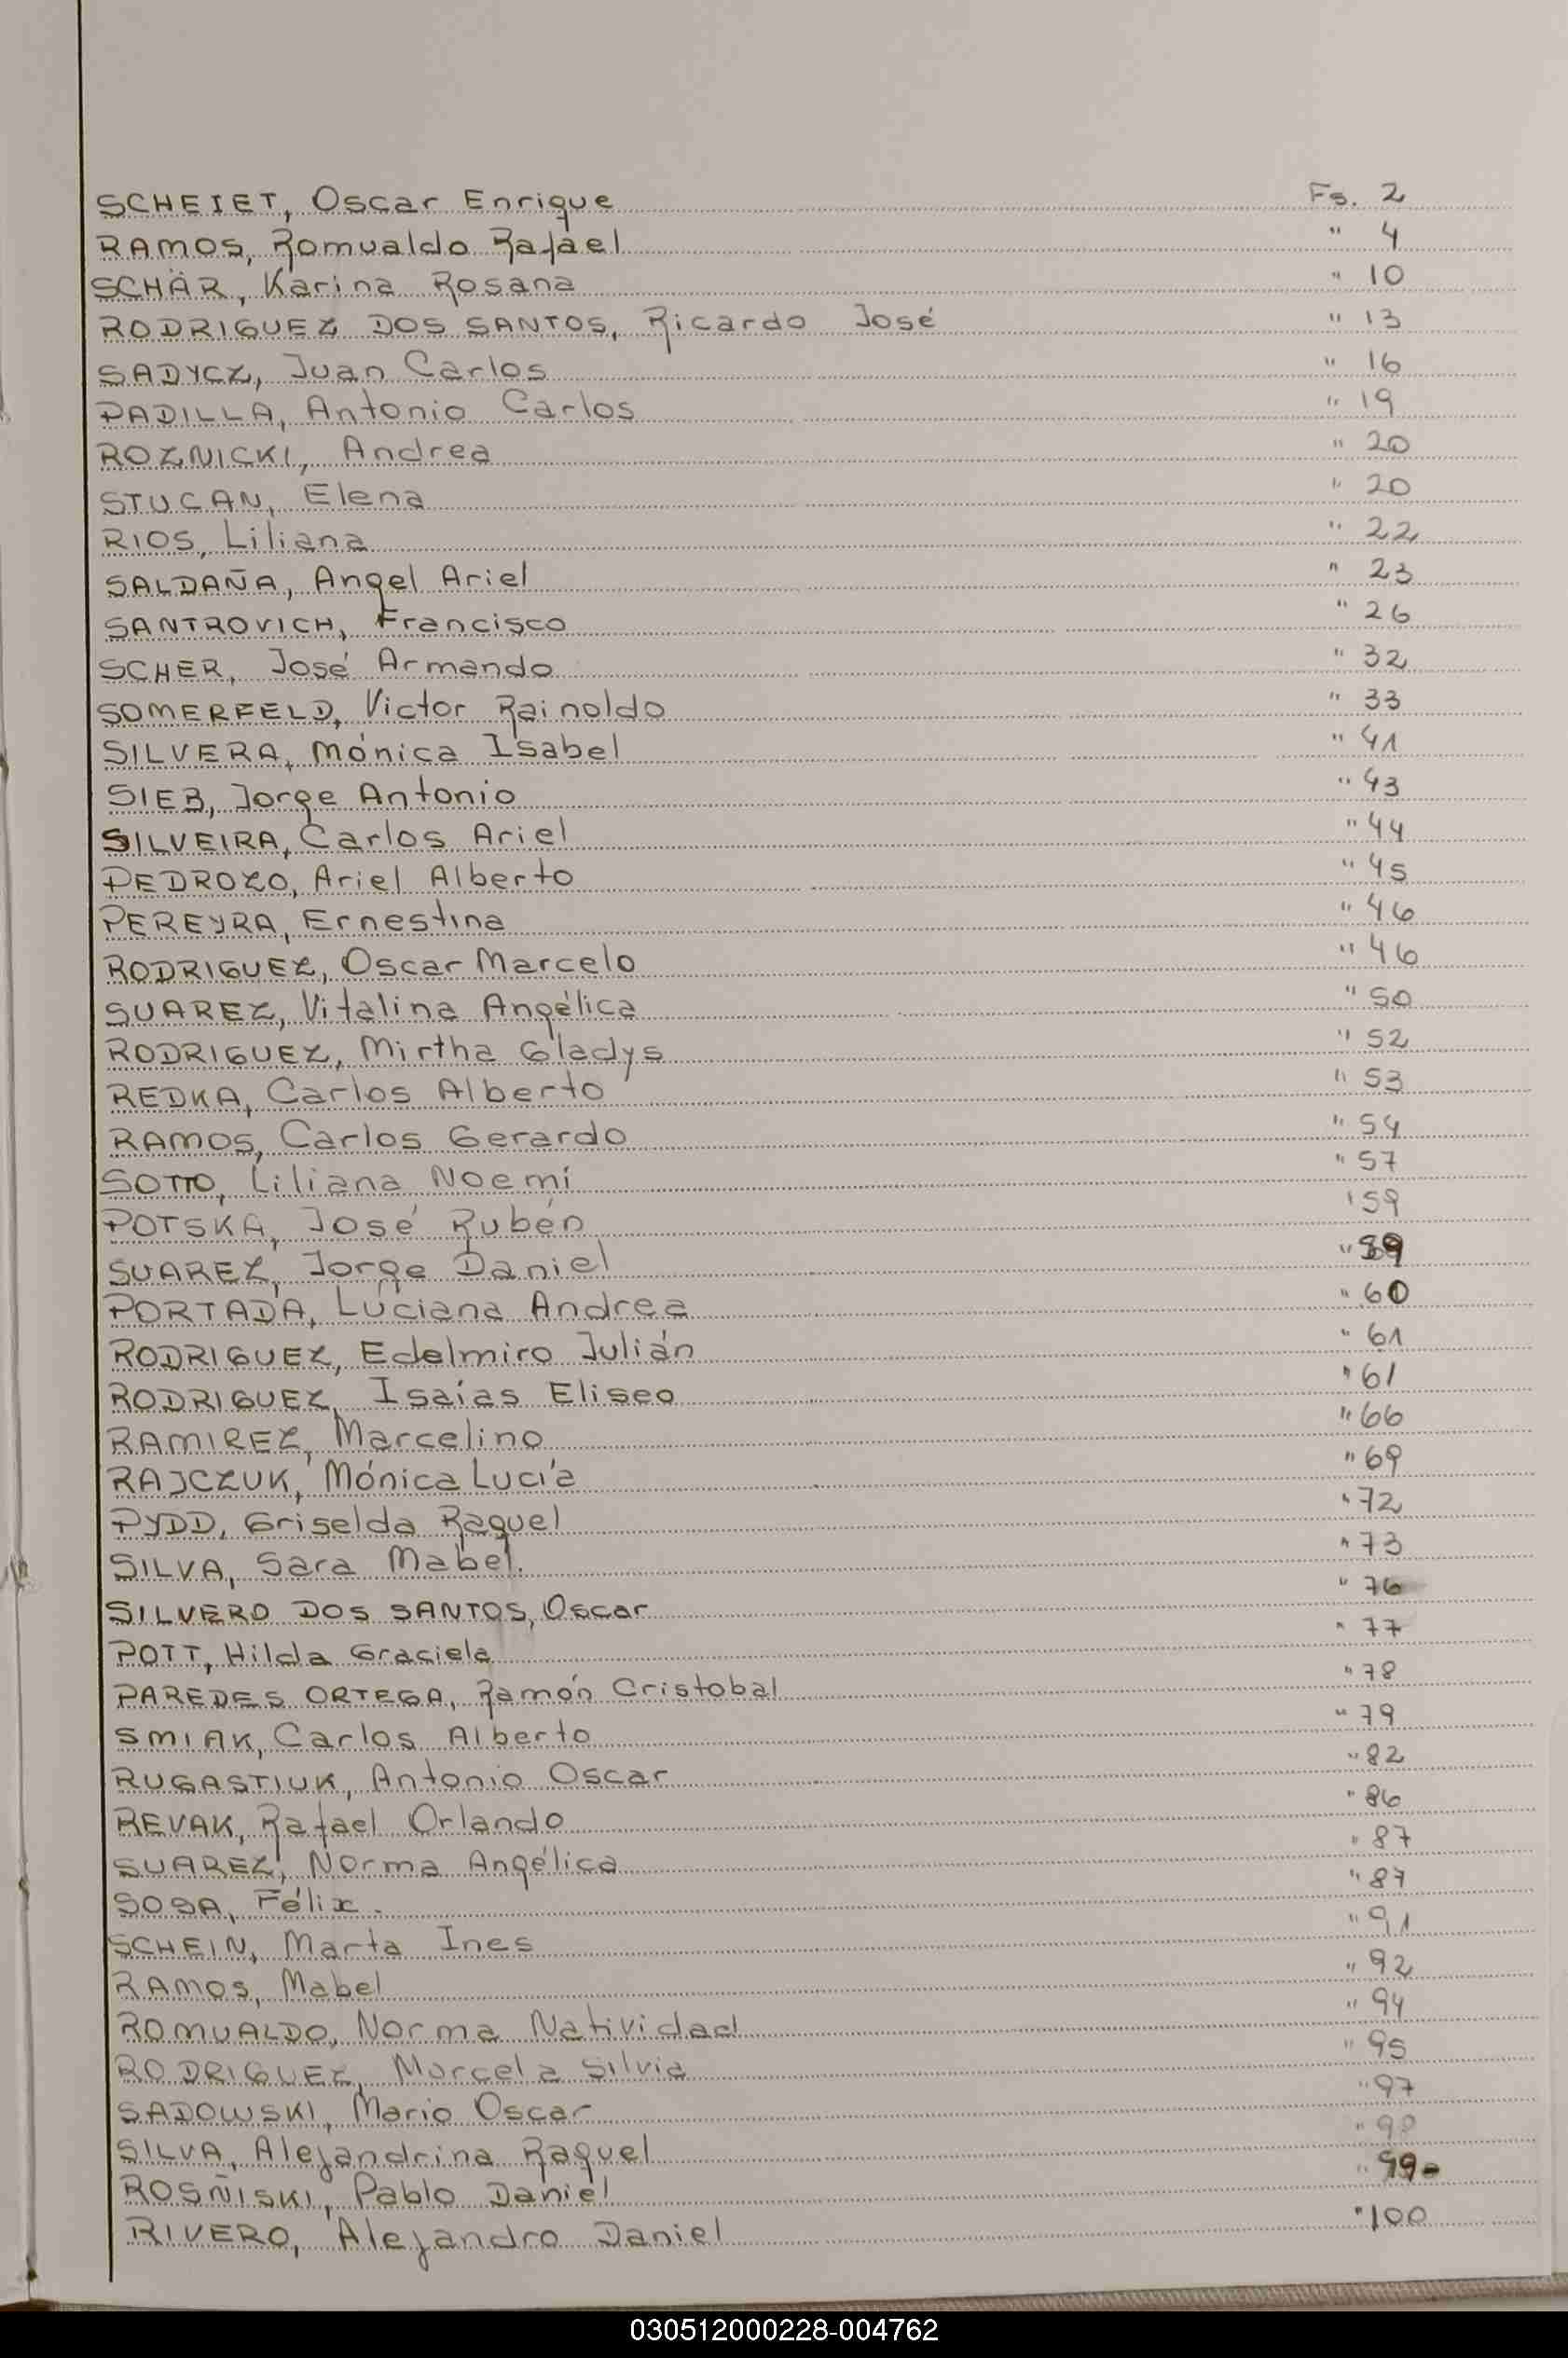 SCHEIET, Oscar Enrique Fs. 2
RAMOS, Romualdo Rafael " 4
SCHÄR, Karina Rosana " 10
RODRIGUEZ DOS SANTOS, Ricardo José " 13
SADYCZ, Juan Carlos " 16
PADILLA, Antonio Carlos " 19
ROZNICKI, Andrea " 20
STUCAN, Elena " 20
RIOS, Liliana " 22
SALDAÑA, Angel Ariel " 23
SANTROVICH, Francisco " 26
SCHER, José Armando " 32
SOMERFELD, Victor Rainoldo " 33
SILVERA, Mónica Isabel " 41
SIEB, Jorge Antonio " 43
SILVEIRA, Carlos Ariel " 44
PEDROZO, Ariel Alberto " 45
PEREYRA, Ernestina " 46
RODRIGUEZ, Oscar Marcelo " 46
SUAREZ, Vitalina Angélica " 50
RODRIGUEZ, Mirtha Gladys " 52
REDKA, Carlos Alberto " 53
RAMOS, Carlos Gerardo " 54
SOTTO, Liliana Noemí " 57
POTSKA, José Rubén " 59
SUAREZ, Jorge Daniel " 59
PORTADA, Luciana Andrea " 60
RODRIGUEZ, Edelmiro Julián " 61
RODRIGUEZ, Isaías Eliseo " 61
RAMIREZ, Marcelino " 66
RAJCZUK, Mónica Lucía " 69
PYDD, Griselda Raquel " 72
SILVA, Sara Mabel. " 73
SILVERO DOS SANTOS, Oscar " 76
POTT, Hilda Graciela " 77
PAREDES ORTEGA, Ramón Cristobal " 78
SMIAK, Carlos Alberto " 79
RUGASTIUK, Antonio Oscar " 82
REVAK, Rafael Orlando " 86
SUAREZ, Norma Angélica " 87
SOSA, Félix. " 87
SCHEIN, Marta Ines " 91
RAMOS, Mabel " 92
ROMUALDO, Norma Natividad " 94
RODRIGUEZ, Marcela Silvia " 95
SADOWSKI, Mario Oscar " 97
SILVA, Alejandrina Raquel " 98
ROSÑISKI, Pablo Daniel " 99-
RIVERO, Alejandro Daniel " 100
030512000228-004762